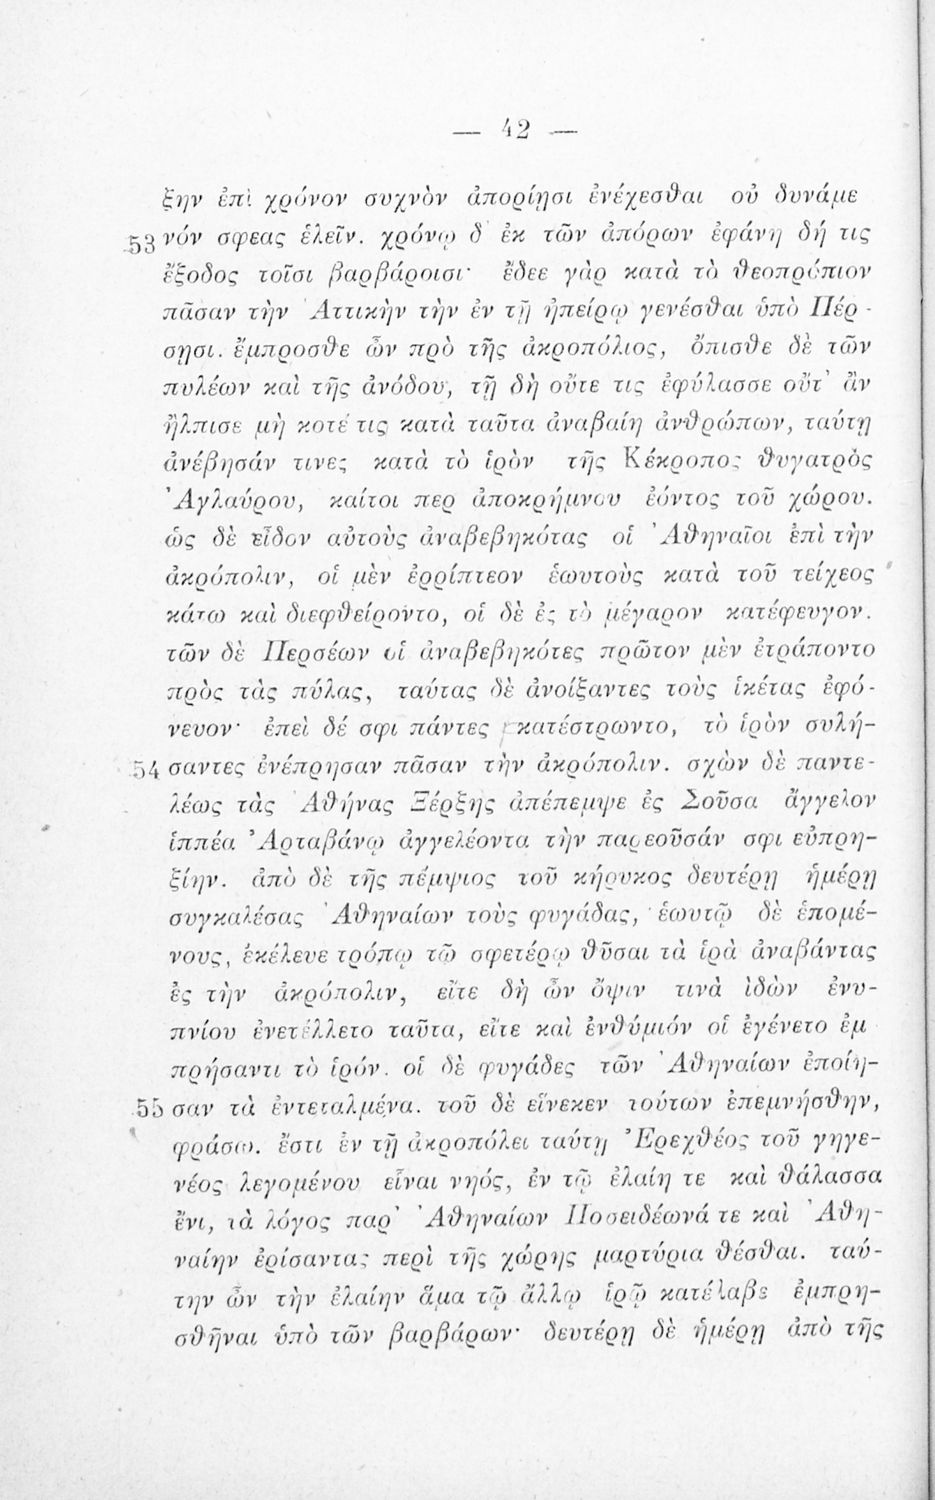 — 42 —
ξην ἐπὶ χρόνον συχνὸν ἀπορίῃσι ἐνέχεσθαι οὐ δυνάμε
53 νόν σφεας ἑλεῖν. χρόνῳ δ' ἐκ τῶν ἀπόρων ἐφάνη δή τις
ἔξοδος τοῖσι βαρβάροισι· ἔδεε γὰρ κατὰ τὸ θεοπρόπιον
πᾶσαν τὴν Ἀττικὴν τὴν ἐν τῇ ἠπείρῳ γενέσθαι ὑπὸ Πέρ-
σῃσι. ἔμπροσθε ὦν πρὸ τῆς ἀκροπόλιος, ὄπισθε δὲ τῶν
πυλέων καὶ τῆς ἀνόδου, τῇ δὴ οὔτε τις ἐφύλασσε οὔτ' ἂν
ἤλπισε μὴ κοτέ τις κατὰ ταῦτα ἀναβαίη ἀνθρώπων, ταύτῃ
ἀνέβησάν τινες κατὰ τὸ ἱρὸν τῆς Κέκροπος θυγατρὸς
Ἀγλαύρου, καίτοι περ ἀποκρήμνου ἐόντος τοῦ χώρου.
ὡς δὲ εἶδον αὐτοὺς ἀναβεβηκότας οἱ Ἀθηναῖοι ἐπὶ τὴν
ἀκρόπολιν, οἱ μὲν ἐρρίπτεον ἑωυτοὺς κατὰ τοῦ τείχεος
κάτω καὶ διεφθείροντο, οἱ δὲ ἐς τὸ μέγαρον κατέφευγον.
τῶν δὲ Περσέων οἱ ἀναβεβηκότες πρῶτον μὲν ἐτράποντο
πρὸς τὰς πύλας, ταύτας δὲ ἀνοίξαντες τοὺς ἱκέτας ἐφό-
νευον· ἐπεὶ δέ σφι πάντες κατέστρωντο, τὸ ἱρὸν συλή-
54 σαντες ἐνέπρησαν πᾶσαν τὴν ἀκρόπολιν. σχὼν δὲ παντε-
λέως τὰς Ἀθήνας Ξέρξης ἀπέπεμψε ἐς Σοῦσα ἄγγελον
ἱππέα Ἀρταβάνῳ ἀγγελέοντα τὴν παρεοῦσάν σφι εὐπρη-
ξίην. ἀπὸ δὲ τῆς πέμψιος τοῦ κήρυκος δευτέρῃ ἡμέρῃ
συγκαλέσας Ἀθηναίων τοὺς φυγάδας, ἑωυτῷ δὲ ἑπομέ-
νους, ἐκέλευε τρόπῳ τῷ σφετέρῳ θῦσαι τὰ ἱρὰ ἀναβάντας
ἐς τὴν ἀκρόπολιν, εἴτε δὴ ὦν ὄψιν τινὰ ἰδὼν ἐνυ-
πνίου ἐνετέλλετο ταῦτα, εἴτε καὶ ἐνθύμιόν οἱ ἐγένετο ἐμ
πρήσαντι τὸ ἱρόν. οἱ δὲ φυγάδες τῶν Ἀθηναίων ἐποίη-
55 σαν τὰ ἐντεταλμένα. τοῦ δὲ εἵνεκεν τούτων ἐπεμνήσθην,
φράσω. ἔστι ἐν τῇ ἀκροπόλει ταύτῃ Ἐρεχθέος τοῦ γηγε-
νέος λεγομένου εἶναι νηός, ἐν τῷ ἐλαίη τε καὶ θάλασσα
ἔνι, τὰ λόγος παρ' Ἀθηναίων Ποσειδέωνά τε καὶ Ἀθη-
ναίην ἐρίσαντας περὶ τῆς χώρης μαρτύρια θέσθαι. ταύ-
την ὦν τὴν ἐλαίην ἅμα τῷ ἄλλῳ ἱρῷ κατέλαβε ἐμπρη-
σθῆναι ὑπὸ τῶν βαρβάρων· δευτέρῃ δὲ ἡμέρῃ ἀπὸ τῆς